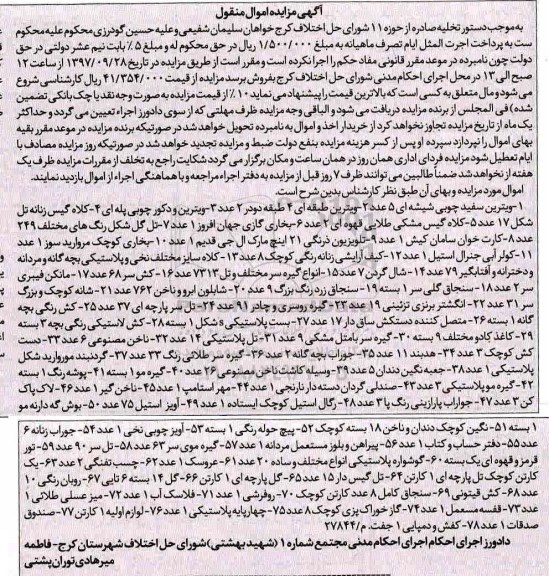 آگهی مزایده اموال منقول
به موجب دستور تخلیه صادره از حوزه ۱۱ شورای حل اختلاف کرج خواهان سلیمان شفیعی و علیه حسین گودرزی محکوم علیه محکوم
ست به پرداخت اجرت المثل ایام تصرف ماهیانه به مبلغ ۱/۵۰۰/۰۰۰ ریال در حق محکوم له و مبلغ ۵٪ بابت نیم عشر دولتی در حق
دولت چون نامبرده در موعد مقرر قانونی مفاد حکم را اجرا نکرده است و مقرر است از طریق مزایده در تاریخ ۱۳۹۷/۰۹/۲۸ از ساعت ۱۲
صبح الی ۱۳ در محل اجرای احکام مدنی شورای حل اختلاف کرج بفروش برسد مزایده از قیمت ۴۱/۳۵۴/۰۰۰ ریال کارشناسی شروع
می شود و مال متعلق به کسی است که بالاترین قیمت را پیشنهاد می نماید ۱۰٪ از قیمت مزایده به صورت وجه نقد یا چک بانکی تضمین
شده) فی المجلس از برنده مزایده دریافت می شود و الباقی وجه مزایده ظرف مهلتی که از سوی دادورز اجراء تعیین می گردد و حداکثر
یک ماه از تاریخ مزایده تجاوز نخواهد کرد از خریدار اخذ و اموال به نامبرده تحویل خواهد شد در صورتیکه برنده مزایده در موعد مقرر بقیه
بهای اموال را نپردازد سپرده او پس از کسر هزینه مزایده بنفع دولت ضبط و مزایده تجدید خواهد شد در صورتیکه روز مزایده مصادف با
ایام تعطیل شود مزایده فردای اداری همان روز در همان ساعت و مکان برگزار می گردد شکایت راجع به تخلف از مقررات مزایده ظرف یک
هفته از نخواهد شد ضمناً طالبین می توانند ظرف ۷ روز قبل از مزایده به دفتر اجراء مراجعه و با هماهنگی اجراء از اموال بازدید نمایند.
اموال مورد مزایده و بهای آن طبق نظر کارشناس بدین شرح است.
۱-ویترین سفید چوبی شیشه ای ۵ عدد ۲-ویترین پله ای ۴ طبقه دو در ۲ عدد ۳-ویترین و دکور چوبی پله ای ۴-کلاه گیس زنانه تل
شکل ۱۷ عدد ۵-کلاه گیس مشکی طلایی قهوه ای ۲ عدد ۶-بخاری گازی جهان افروز ۱ عدد ۷-تل گل شکل رنگ های مختلف ۲۴۹
عدد ۸-کارت خوان سامان کیش ۱ عدد ۹-تلویزیون ذرنگی ۲۱ اینچ مارک ال جی قدیم ۱ عدد ۱۰-بخاری کوچک مروارید سوز ۱ عدد
۱۱-کولر آبی جنرال استیل ۱ عدد ۱۲-کیف آرایشی زنانه رنگی کوچک ۸ عدد ۱۳-کلاه سایز مختلف نخی و پلاستیکی بچه گانه و مردانه
و دخترانه و آفتابگیر ۷۹ عدد ۱۴-شال گردن ۷ عدد ۱۵-انواع گیره سر مختلف و تل ۷۳۱۳ عدد ۱۶-کش سر ۶۸ عدد ۱۷-مانکن فیبری
سر ۲ عدد ۱۸-سنجاق گلی سر ۱ بسته ۱۹-سنجاق زرد رنگ بزرگ ۹ عدد ۲۰-شابلون ابرو و ناخن ۷۶۲ عدد ۲۱-شانه کوچک و بزرگ
سر ۳۱ عدد ۲۲-انگشتر برنزی تزئینی ۱۹ عدد ۲۳-گیره روسری و چادر ۹۱ عدد ۲۴-تل سر پارچه ای ۳۷ عدد ۲۵-کش رنگی بچه
گانه ۱ بسته ۲۶-متصل کننده دستکش ساق دار ۱۷ عدد ۲۷-بست پلاستیکی s شکل ۱ بسته ۲۸-کش لاستیکی رنگی بچه ۳ بسته
۲۹-کاغذ کادو مختلف ۹ بسته ۳۰-گیره سر با مثل مشکی ۹ عدد ۳۱-تل پلاستیکی ۱۴ عدد ۳۲-ناخن مصنوعی ۶ عدد ۳۳-دست
کش کوچک ۳ عدد ۳۴-هدبند ۱۱ عدد ۳۵-جوراب بچه گانه ۲ عدد ۳۶-گیره سر طلائی رنگ ۳۳ عدد ۳۷-گردنبند مروارید شکل
پلاستیکی ۱ عدد ۳۸-جعبه نگین دندان ۵ عدد ۳۹-وسیله کاشت ناخن مصنوعی ۲۶ عدد ۴۰-گیره مو ۱ بسته ۴۱-پوشه رنگ ۱ بسته
۴۲-گیره مو پلاستیکی ۲ عدد ۴۳-صندلی گردان دسته دار نارنجی ۱ عدد ۴۴-مهر استامپ ۱ عدد ۴۵-ناخن گیر ۱ عدد ۴۶-لاک پاک
کن ۳ عدد ۴۷-جوراب پارازینی رنگ پا ۳ عدد ۴۸-رگال استیل کوچک ایستاده ۱ عدد ۴۹-آویز استیل ۷۵ عدد ۵۰-بوش گه دار نه مو
۱ بسته ۵۱-نگین کوچک دندان و ناخن ۱۸ بسته کوچک ۵۲-پیچ حوله رنگی ۱ بسته ۵۳-آویز چوبی نخی ۱ عدد ۵۴-جوراب زنانه ۶
عدد ۵۵-دفتر حساب و کتاب ۱ عدد ۵۶-پیراهن و بلوز مستعمل مردانه ۱ عدد ۵۷-گیره موی سر ۶۳ عدد ۵۸-تل سر ۹۰ عدد ۵۹-تور
قرمز و قهوه ای یک بسته ۶۰-گوشواره پلاستیکی انواع مختلف و ساده ۲۰ عدد ۶۱-عروسک ۱ عدد ۶۲-چسب تفنگی ۲ عدد ۶۳-یک
کارتن کوچک تل پارچه ای ۱ کارتن ۶۴-تل گیس دار ۱۵ عدد ۶۵-گل پارچه ای ۱ کارتن ۶۶-گل ۱۴ بسته ۶ تایی ۶۷-روبان رنگی ۱۰
عدد ۶۸-کش قیتونی ۶۹-سنجاق کامل ۸ عدد کارتن کوچک ۷۰-روفرشی ۱ عدد ۷۱-فلاسک آب ۱ عدد ۷۲-میز عسلی طلائی ۱
عدد ۷۳-قفسه مسعمل ۱ عدد ۷۴-گاز خوراک پزی کوچک ۸ عدد ۷۵-چهارپایه پلاستیکی ۱ عدد ۷۶-لوازم اولیه ۱ کارتن ۷۷-صندوق
صدقات ۱ عدد ۷۸-کفش و دمپایی ۱ جفت. م/۲۷۸۴۴
دادورز اجرای احکام اجرای احکام مدنی مجتمع شماره ۱ (شهید بهشتی) شورای حل اختلاف شهرستان کرج - فاطمه
میرهادی توران پشتی